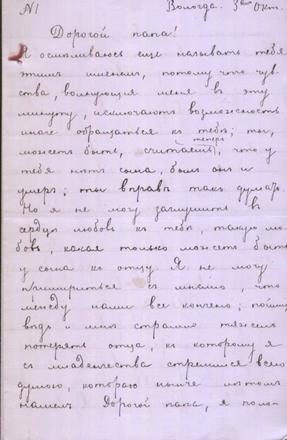 №1 Вологда. 3го Окт.
Дорогой папа!
Я осмѣливаюсь еще называть тебя
этимъ именемъ, потому что чув-
ства, волнующія меня въ эту
минуту, исключаютъ возможность
иначе обращаться къ тебѣ; ты,
теперь
можетъ быть, считаешь, что у
тебя нѣтъ сына, былъ онъ и
умеръ; ты вправѣ такъ думать.
Но я не могу заглушить въ
сердцѣ любовь къ тебѣ, такую лю-
бовь, какая только можетъ быть
у сына къ отцу. Я не могу
примириться съ мыслью, что
между нами все кончено; пойми,
вѣдь и мнѣ страшно тяжело
потерять отца, къ которому я
съ младенчества стремился всею
душою, котораго нынче лѣтомъ
нашелъ. Дорогой папа, я поло-